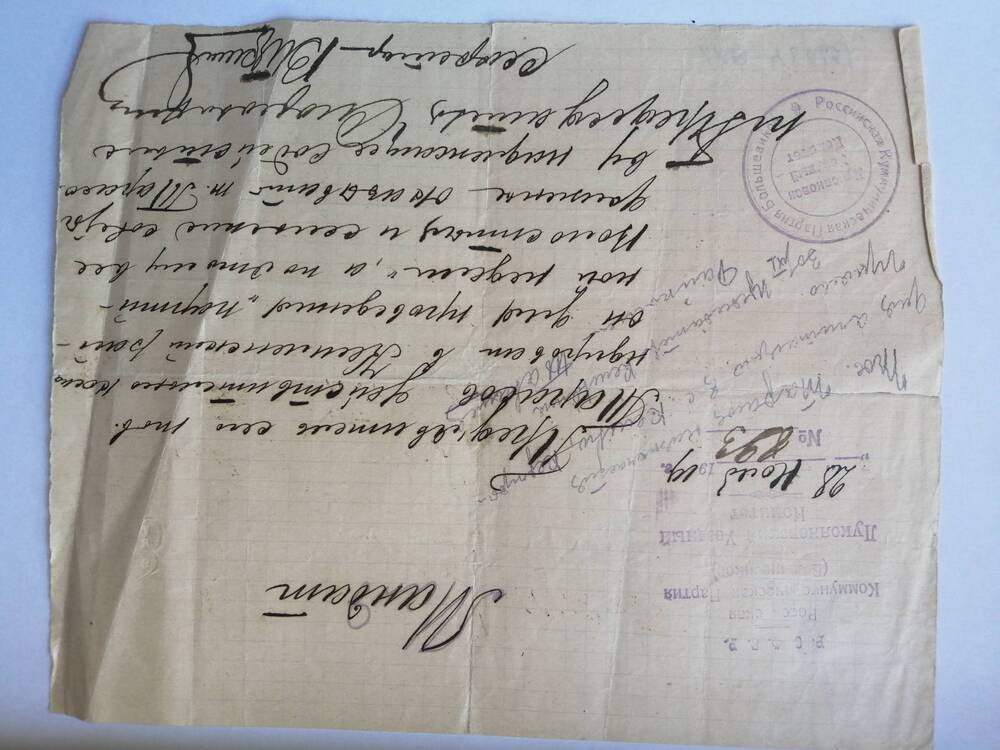 Р. С. Ф. С. Р.
Российская
Коммунистическая Партия
(Большевиков)
Лукояновский Уездный
Комитет
„28 Нояб 1919 г.
№ 893
Мандат
Предъявитель сего тов.
Тарасов действительно кома
ндирован в Кемленский рай-
он для проведения „партий-
ной недели", а поэтому все
Волостныя и сельские советы
должны оказывать т. Тарасо-
ву надлежащее содействие
Председателя
секретарь
Тов. Тарасов назначается
для агитации в с.
Председатель
Райко
30/XI
Российская Коммунистическая Партия Большевиков
Лукояновский
Уездный
Комитет